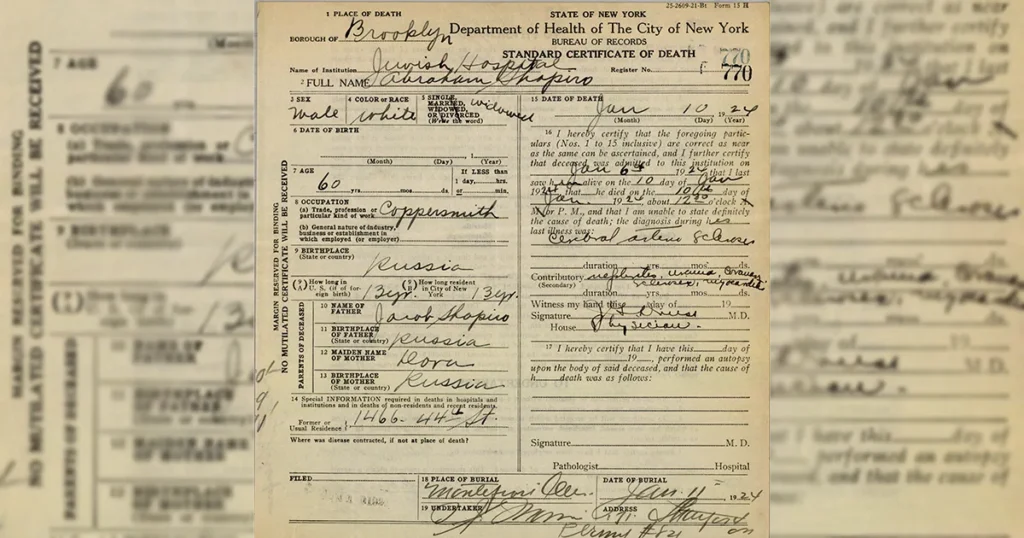 25-2609-21-Bt Form 15 H
1 PLACE OF DEATH
STATE OF NEW YORK
BOROUGH OF Brooklyn
Department of Health of The City of New York
BUREAU OF RECORDS
STANDARD CERTIFICATE OF DEATH
Name of Institution Jewish Hospital
Register No. 770
2 FULL NAME Abraham Shapiro
3 SEX
male
4 COLOR or RACE
white
5 SINGLE, MARRIED, WIDOWED, OR DIVORCED (Write the word)
widowed
6 DATE OF BIRTH
(Month) (Day) (Year)
7 AGE
60 yrs. mos. ds.
If LESS than
1 day, hrs.
or min.
8 OCCUPATION
(a) Trade, profession or
particular kind of work Coppersmith
(b) General nature of industry,
business or establishment in
which employed (or employer)
9 BIRTHPLACE
(State or country)
Russia
(A) How long in U. S. (if of foreign birth) 13 yr.
(B) How long resident in City of New York 13 yr.
MARGIN RESERVED FOR BINDING
NO MUTILATED CERTIFICATE WILL BE RECEIVED
PARENTS OF DECEASED
10 NAME OF
FATHER Jacob Shapiro
11 BIRTHPLACE
OF FATHER
(State or country) Russia
12 MAIDEN NAME
OF MOTHER Dora
13 BIRTHPLACE
OF MOTHER
(State or country) Russia
14 Special INFORMATION required in deaths in hospitals
and institutions and in deaths of non-residents and recent residents.
Former or
Usual Residence 1466-44th St.
Where was disease contracted, if not at place of death?
15 DATE OF DEATH
Jan 10 1924
(Month) (Day) (Year)
16 I hereby certify that the foregoing particulars
(Nos. 1 to 15 inclusive) are correct as near
as the same can be ascertained, and I further certify
that deceased was admitted to this institution on
Jan 6th 1924 that I last
saw him alive on the 10 day of Jan
1924 that he died on the 10th day of
Jan. 1924, about o'clock
A. M. or P. M., and that I am unable to state definitely
the cause of death; the diagnosis during his
last illness was:
Cerebral arterio sclerosis
duration yrs. mos. ds.
Contributory nephritis, uremia,
(Secondary) sclerosis,
duration yrs. mos. ds.
Witness my hand this day of 19
Signature M.D.
House Physician.
17 I hereby certify that I have this day of
19, performed an autopsy
upon the body of said deceased, and that the cause of
h death was as follows:
Signature M. D.
Pathologist Hospital
FILED
18 PLACE OF BURIAL
Montefiore Cem.
DATE OF BURIAL
Jan. 11 1924
19 UNDERTAKER
ADDRESS